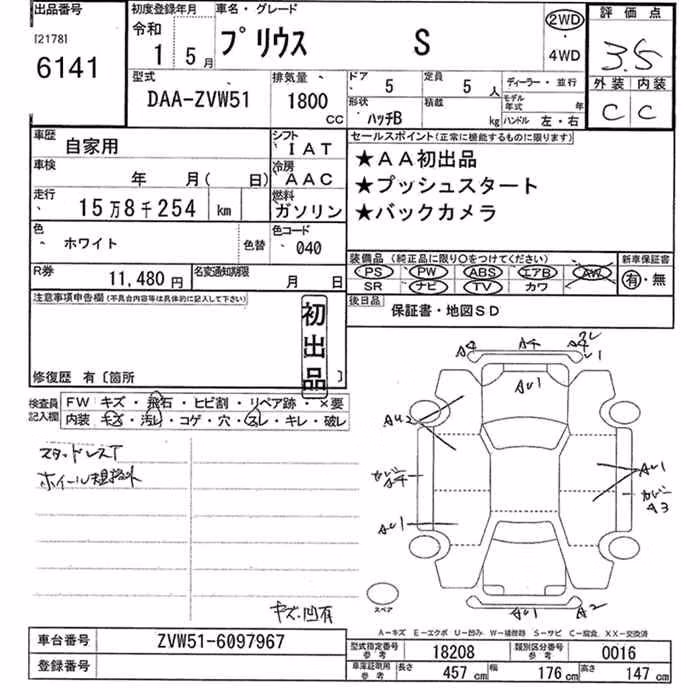 出品番号
[2178]
6141
初度登録年月
令和
1 5月
車名・グレード
プリウス S
2WD
・
4WD
評価点
3.5
外装 内装
C C
型式
DAA-ZVW51
排気量
1800
CC
ドア 5
定員 5 人
形状 ハッチB
積載 kg
ディーラー・並行
モデル年式 年
ハンドル 左・右
車歴 自家用
シフト IAT
車検 年 月( 日)
冷房 AAC
走行 15万8千254 km
燃料 ガソリン
色 ホワイト 色替
色コード 040
R券 11,480円
名変通知期限 月 日
セールスポイント(正常に機能するものに限ります)
★AA初出品
★プッシュスタート
★バックカメラ
装備品(純正品に限り○をつけてください)
PS PW ABS エアB AW
SR ナビ TV カワ
新車保証書
有・無
後日品 保証書・地図SD
注意事項申告欄(不具合内容等は具体的に記入して下さい)
初出品
修復歴 有〔箇所 〕
検査員記入欄
FW キズ・飛石・ヒビ割・リペア跡・×要
内装 キズ・汚レ・コゲ・穴・スレ・キレ・破レ
スタッドレスT
ホイール規格外
キズ・凹有
A4 A4 A2
AU1
AU2
AU1
カバー
A3
AU1
AU1 A2
スペア
A-キズ E-エクボ U-凹み W-補修跡 S-サビ C-腐食 XX-交換済
車台番号 ZVW51-6097967
登録番号
型式指定番号 参考 18208
類別区分番号 参考 0016
車庫証明用 参考 長さ 457cm 幅 176cm 高さ 147cm